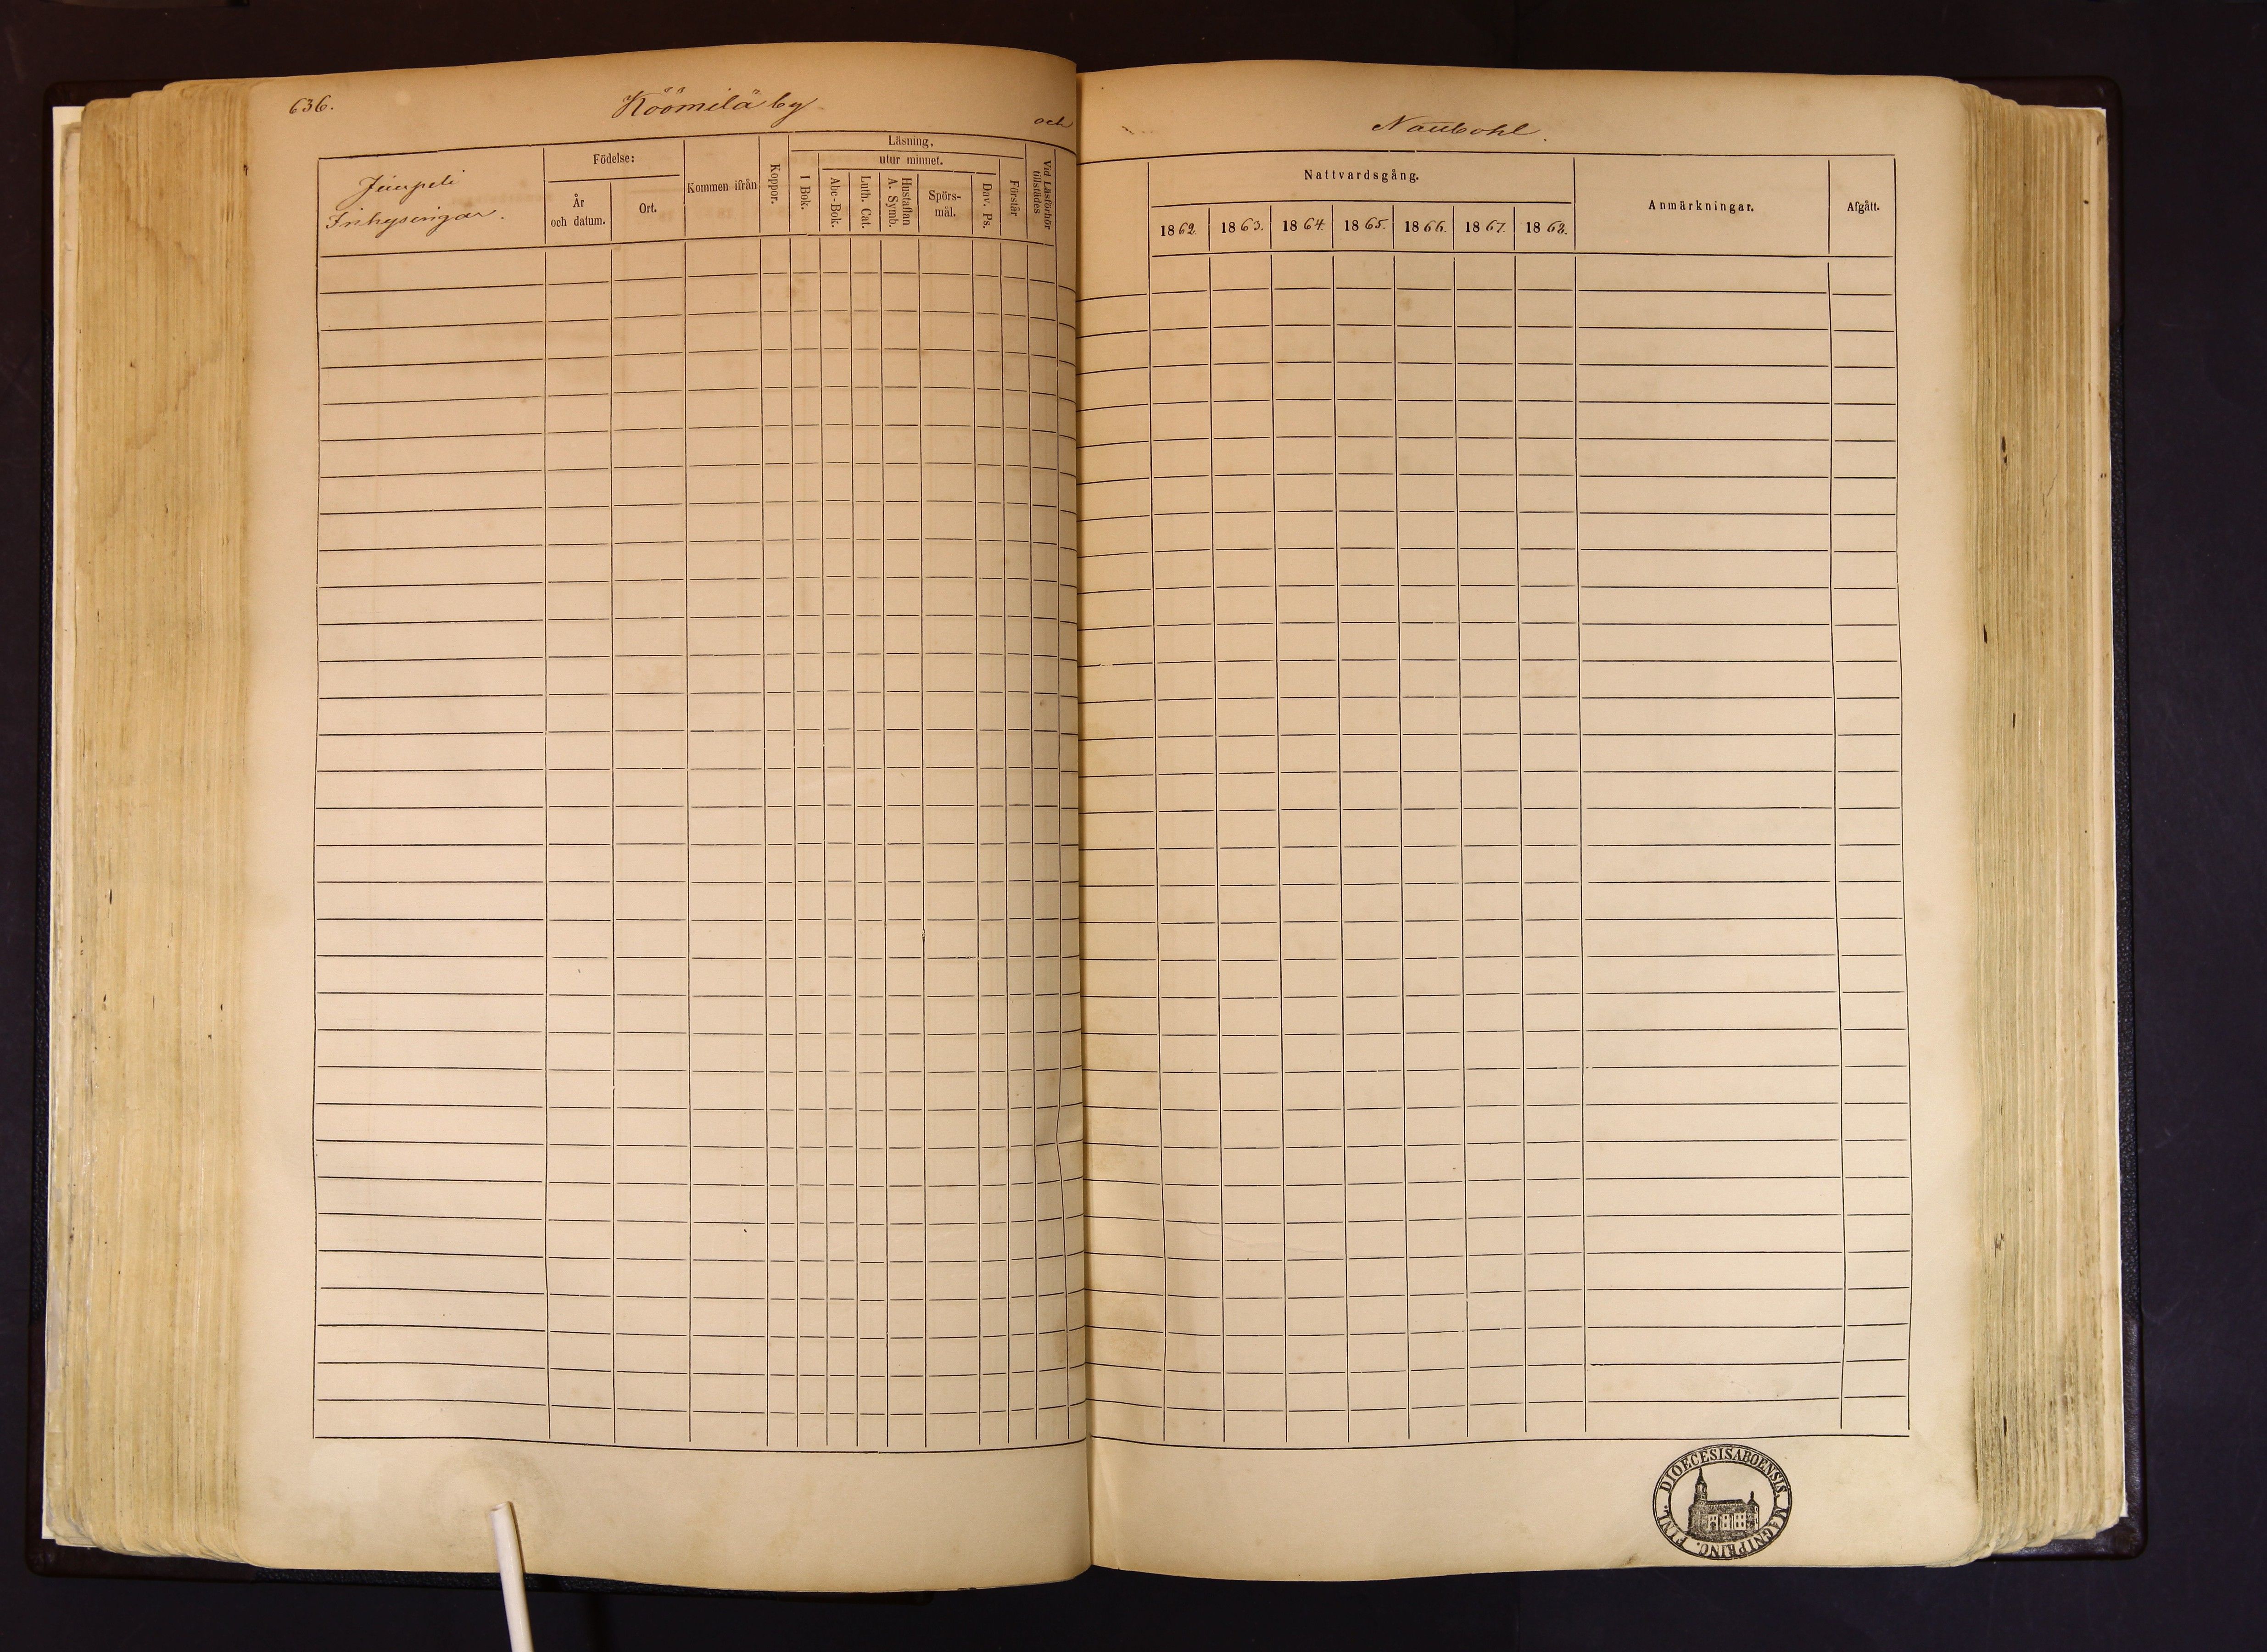 636.
Köömilä by
och
Naubohl.
Inhysingar.
Födelse:
År
och datum.
Ort.
Kommen ifrån
Koppor.
Läsning,
I Bok.
utur minnet.
Abc-Bok.
Luth. Cat.
Hustaflan
A. Symb.
Spörs-
mål.
Dav. Ps.
Förstår
Vid Läsförhör
tillstädes
Nattvardsgång.
1862. 1863. 1864. 1865. 1866. 1867. 1868.
Anmärkningar.
Afgått.
DIOECESIS ABOENSIS. MAGNI PRINC. FINL.